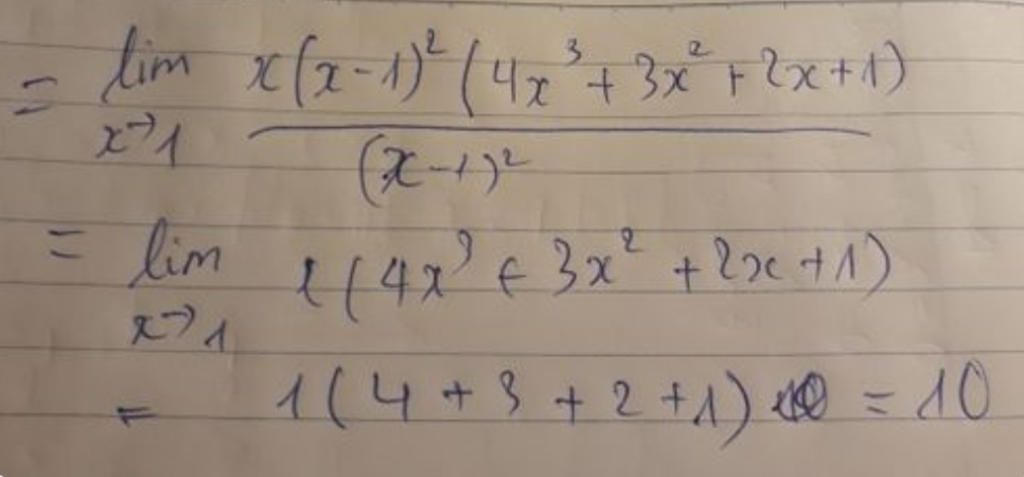 = lim x(x-1)² (4x³ + 3x² + 2x+1)
x→1 (x-1)²
= lim x(4x³ + 3x² + 2x+1)
x→1
= 1(4+3+2+1) = 10